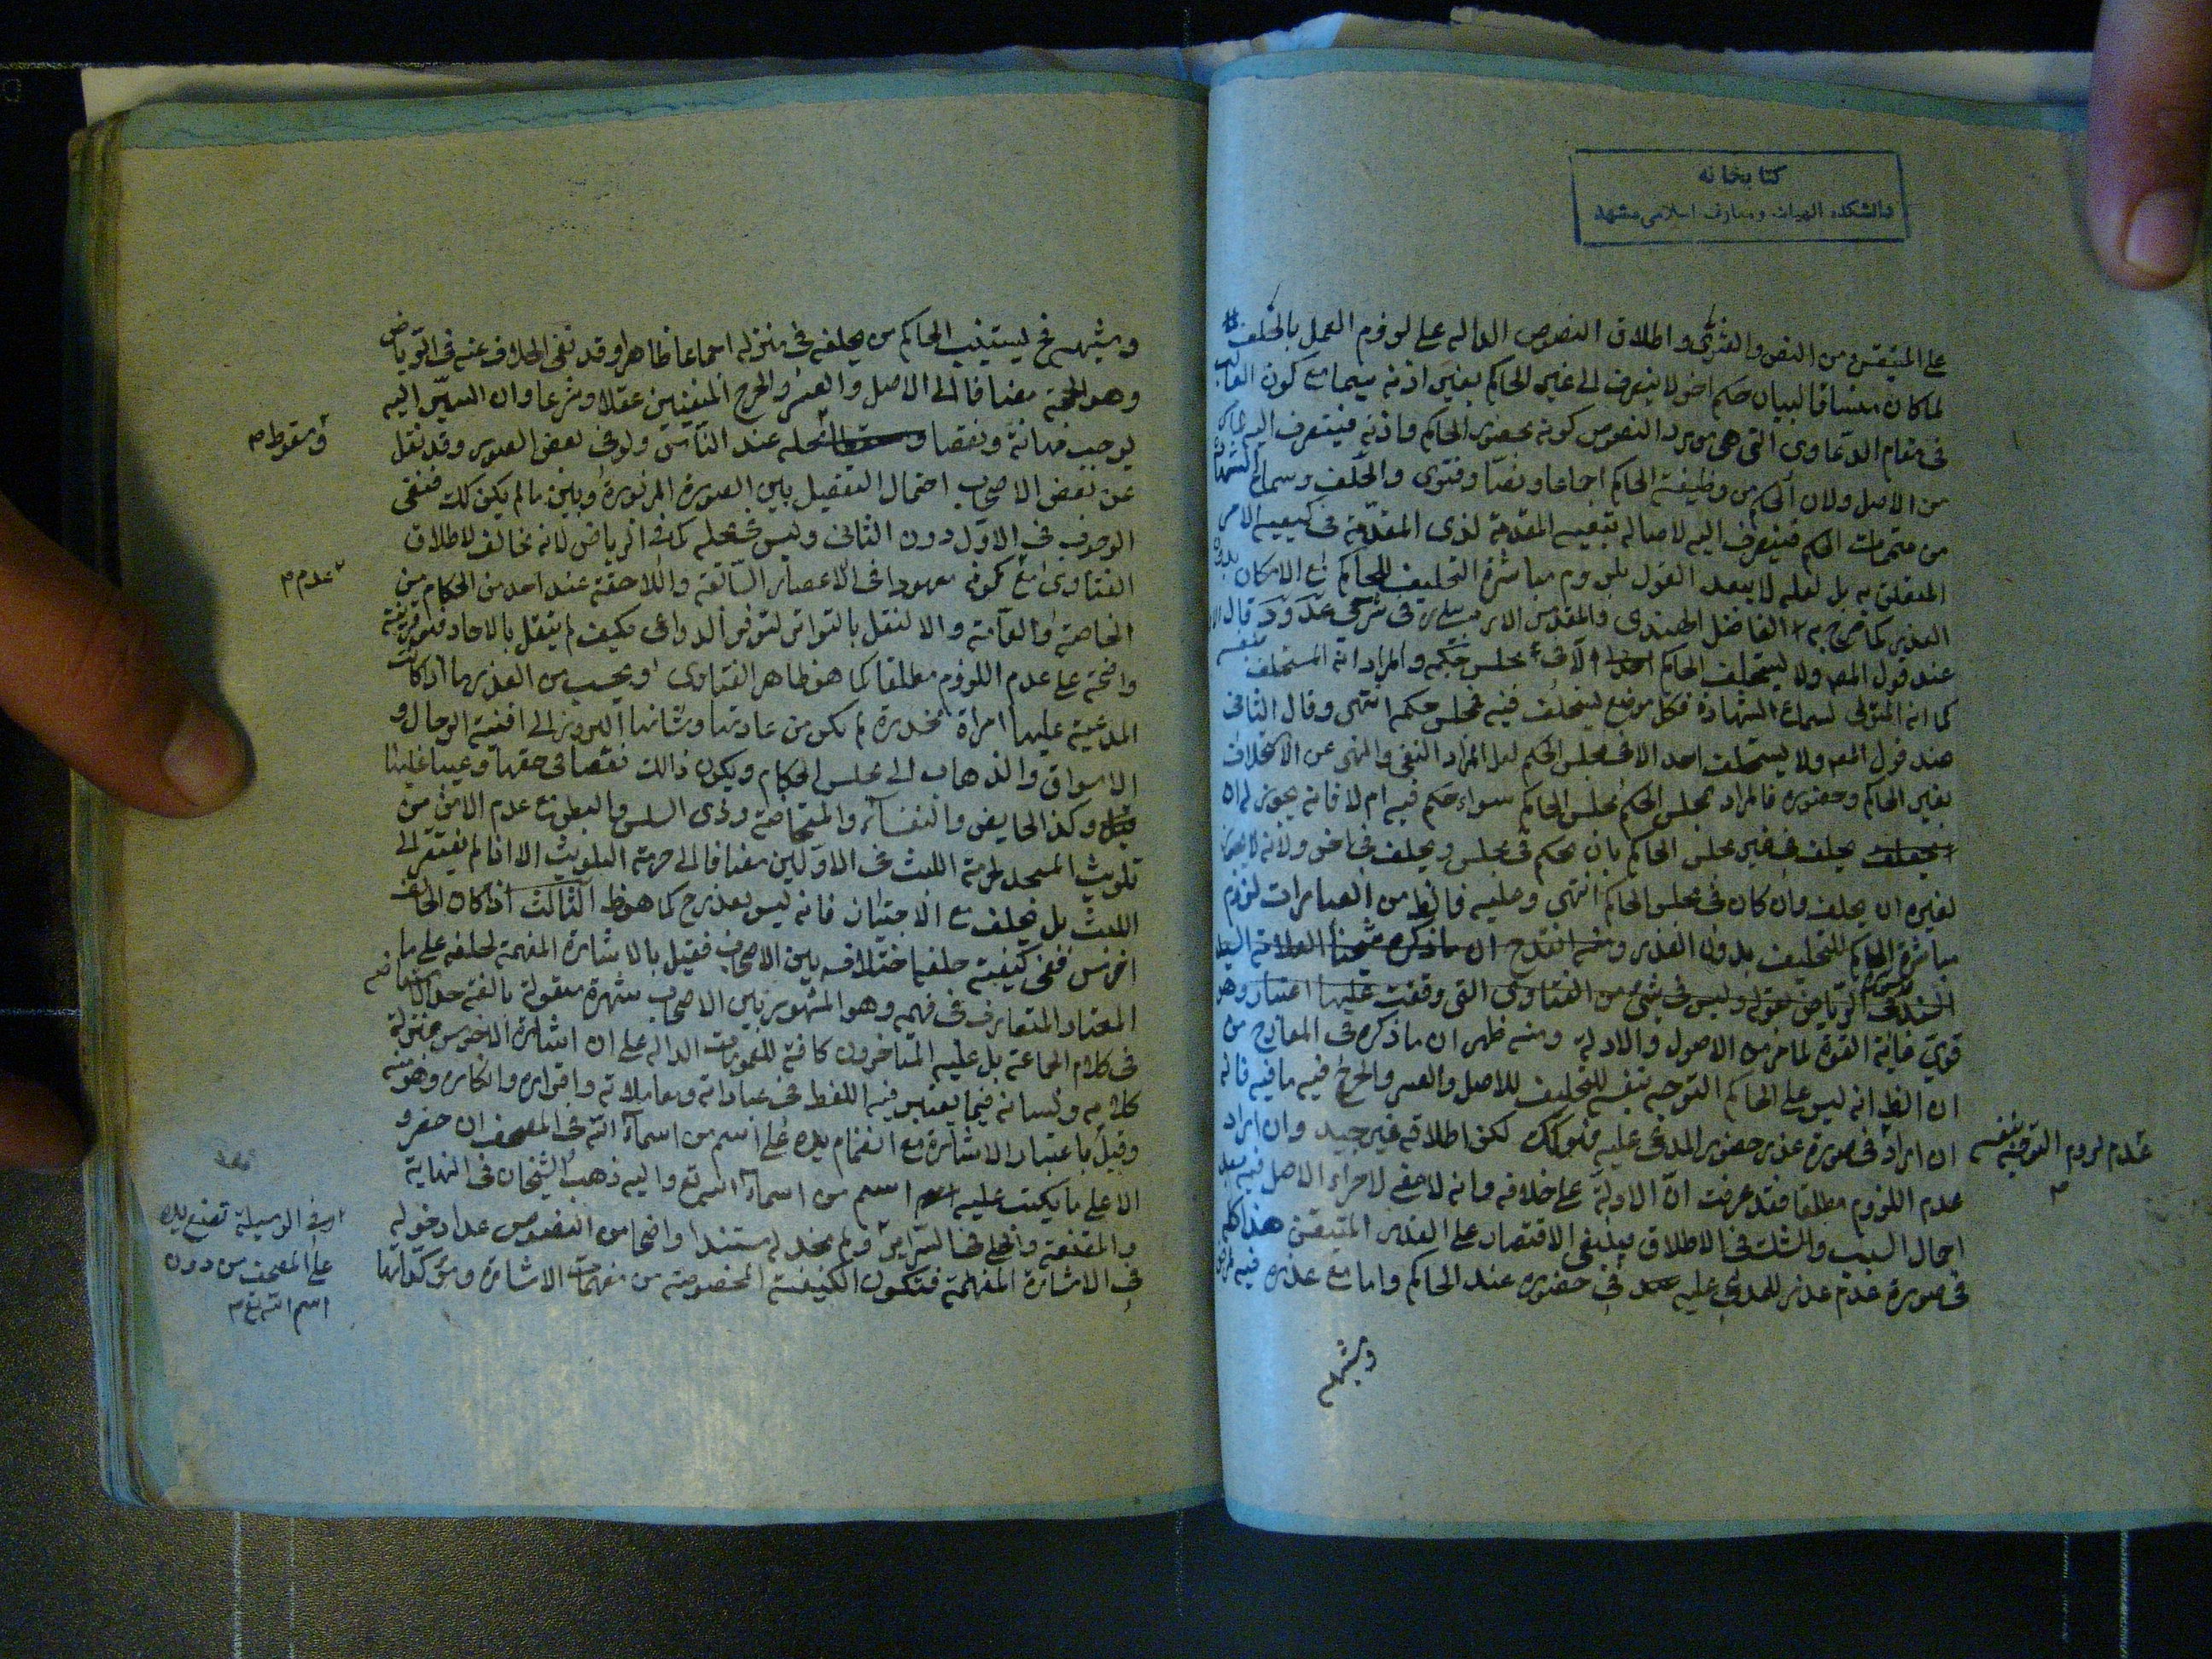 كتابخانه
دانشكده الهيات و معارف اسلامى مشهد
على المتيقن من النص والفتوى واطلاق النصوص الداله على لزوم العمل بالحلف
لما كان مساقا لبيان حكم اخر لا ينصرف الى غير الحاكم بغير اذنه سيما مع كون الغالب
فى مقام الدعاوى التى هى مورد النصوص كونه بحضور الحاكم واذنه فينصرف اليه
من الاصل ولان الحكم من وظيفة الحاكم اجماعا ونصا وفتوى والحلف وسماع الشهادة
من متممات الحكم فينصرف اليه لاصاله تبعيه المقدمة لذى المقدمة فى كيفيه الامر
المتعلق به بل لعله لا يبعد القول بلزوم مباشرة التحليف للحاكم مع الامكان بدون
العذر كما صرح به الفاضل الهندى والمقدس الاردبيلى فى شرحى عد ود قال الاول
عند قول المصـ ولا يستحلف الحاكم احدا الا فى مجلس حكمه والمراد انه المستحلف بنفسه
كما انه المتولى لسماع الشهادة فكل موضع ليتحلف فيه مجلس حكمه انتهى وقال الثانى
عند قول المصـ ولا يستحلف احد الا فى مجلس الحكم لعل المراد النفى والنهى عن الاحلاف
بغير الحاكم وحضوره فالمراد بمجلس الحكم مجلس الحاكم سواء حكم فيه ام لا فانه يجوز له ان
يحلف فى غير مجلس الحاكم بان يحكم فى مجلس ويحلف فى اخر ولانه لا يجوز
لغيره ان يحلف وان كان فى مجلس الحاكم انتهى وعليه فالظ من العبارات لزوم
مباشرة الحاكم للتحليف بدون العذر ومنه انقدح ان ما ذكره شيخنا العلامة
السند فى الرياض بقوله وليس فى شئ من الفتاوى التى وقفت عليها اعتباره وهو
قوى غاية القوة لما مر من الاصول والادلة ومنه ظهر ان ما ذكره فى المعارج من
ان الظ انه ليس على الحاكم التوجه بنفسه للتحليف للاصل والعسر والحرج فيه ما فيه فانه
ان اراد فى صورة عذر حضور المدعى عليه فهو كك لكن اطلاقه غير جيد وان اراد
عدم لزوم التوجه بنفسه
عدم اللزوم مطلقا فقد عرفت ان الادلة على خلافه وانه لا معنى لاجراء الاصل فيه بعد
اجمال السبب والشك فى الاطلاق فينبغى الاقتصار على القدر المتيقن هذا كله
فى صورة عدم عذر للمدعى عليه فى حضوره عند الحاكم واما مع عذره فيه
وشبهه
وشبهه فح يستنيب الحاكم من يحلفه فى منزله اجماعا ظاهرا وقد نفى الخلاف عنه فى الرياض
وهو الحجة مضافا الى الاصل والعسر والحرج المنفيين عقلا وشرعا وان السير اليه
يوجب مهانة ونقصا وسقوط محله عند الناس ولو فى بعض الصور وقد نقل
وسقوط
عن بعض الاصحاب احتمال التفصيل بين الصورة المزبورة وبين ما لم يكن كك فنفى
الوجوب فى الاول دون الثانى وليس فى محله كما فى الرياض لانه مخالف لاطلاق
الفتاوى مع كونه معهودا فى الاعصار السابقة واللاحقة عند احد من الحكام من
عدم
الخاصة والعامة والا لنقل بالتواتر لتوفر الدواعى فكيف لم ينقل بالاحاد فهو قرينة
واضحة على عدم اللزوم مطلقا كما هو ظاهر الفتاوى ويحسب من العذر ما اذا كانت
المدعية عليها امراة مخدرة لم يكن من عادتها وشانها البروز الى افنية الرجال و
الاسواق والذهاب الى مجلس الحكام ويكون ذالك نقصا فى حقها وعيبا عليها
وكذا الحايض والنفساء والمستحاضة وذى السلس والبطن مع عدم الامن من
تلويث المسجد لحرمة اللبث فى الاولين مضافا الى حرمة التلويث الا اذا لم يفتقر الى
اللبث بل يحلف مع الاجتياز فانه ليس بعذر ح كما هو ظ الثالث اذا كان الحالف
اخرس ففى كيفية حلفه اختلاف بين الاصحاب فقيل بالاشارة المفهمة لحلفه على ما
المعتاد المتعارف فى فهمه وهو المشهور بين الاصحاب شهرة منقولة بالغة حد الاستفاضه
فى كلام الجماعة بل عليه المتاخرون كافة للعمومات الداله على ان اشارة الاخرس بمنزلة
كلامه ولسانه فيما يعتبر فيه اللفظ فى عباداته ومعاملاته واقراره وانكاره وهو منه
وقيل باعتبار الاشارة مع انضمام يده على اسم من اسماء الله فى المصحف ان حضر و
الا على ما يكتب عليه اسم من اسماء الله تع واليه ذهب الشيخان فى النهاية
والمقنعة والحلى فى السراير ولم نجد له مستندا واضحا من النصوص عدا دخوله
وفى الوسيلة تضع يده
على المصحف من دون
اسم الله تع
فى الاشارة المفهمة فتكون الكيفية المخصوصة من مفهمات الاشارة ومؤكداتها